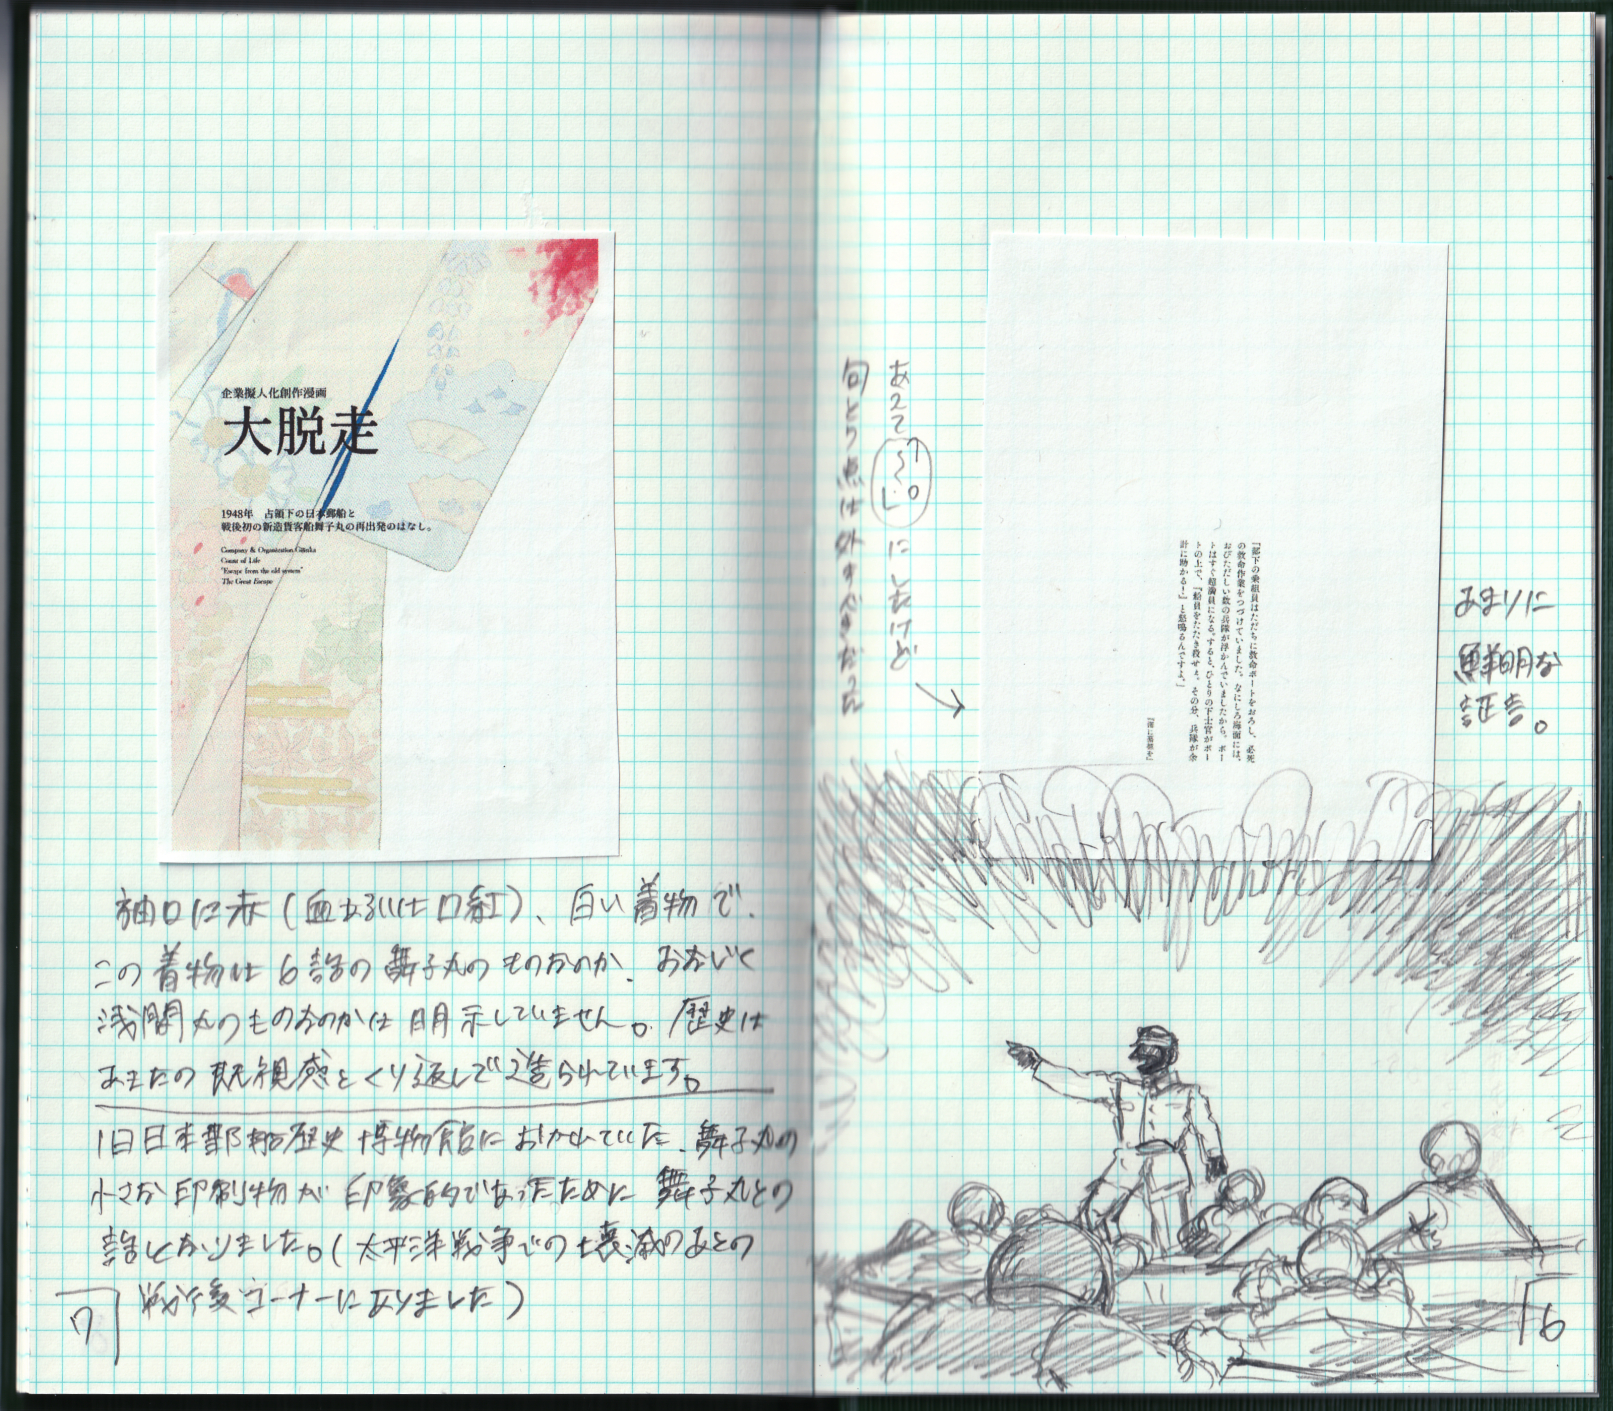 あまりに
鮮明な
証言。
「部下の乗組員はただちに救命ボートをおろし、必死
の救命作業をつづけていました。なにしろ海面には、
おびただしい数の兵隊が浮かんでいましたから、ボー
トはすぐ超満員になる。すると、ひとりの下士官がボー
トの上で、『船員をたたき殺せぇ、その分、兵隊が余
計に助かる！』と怒鳴るんですよ。」
『海に墓標を』
あえて「〜〜。」にしたけど
句とう点は外すべきだった
6
企業擬人化創作漫画
大脱走
1948年　占領下の日本郵船と
戦後初の新造貨客船舞子丸の再出発のはなし。
Company & Organization Gijinka
Count of Life
"Escape from the old system"
The Great Escape
袖口に赤(血あるいは口紅)、白い着物で、
この着物は6話の舞子丸のものなのか、おなじく
浅間丸のものなのかは明示していません。歴史は
あまたの既視感とくり返しで造られています。
旧日本郵船歴史博物館におかれていた、舞子丸の
小さな印刷物が印象的であったために舞子丸との
話となりました。(太平洋戦争での壊滅のあとの
戦後コーナーにありました)
7